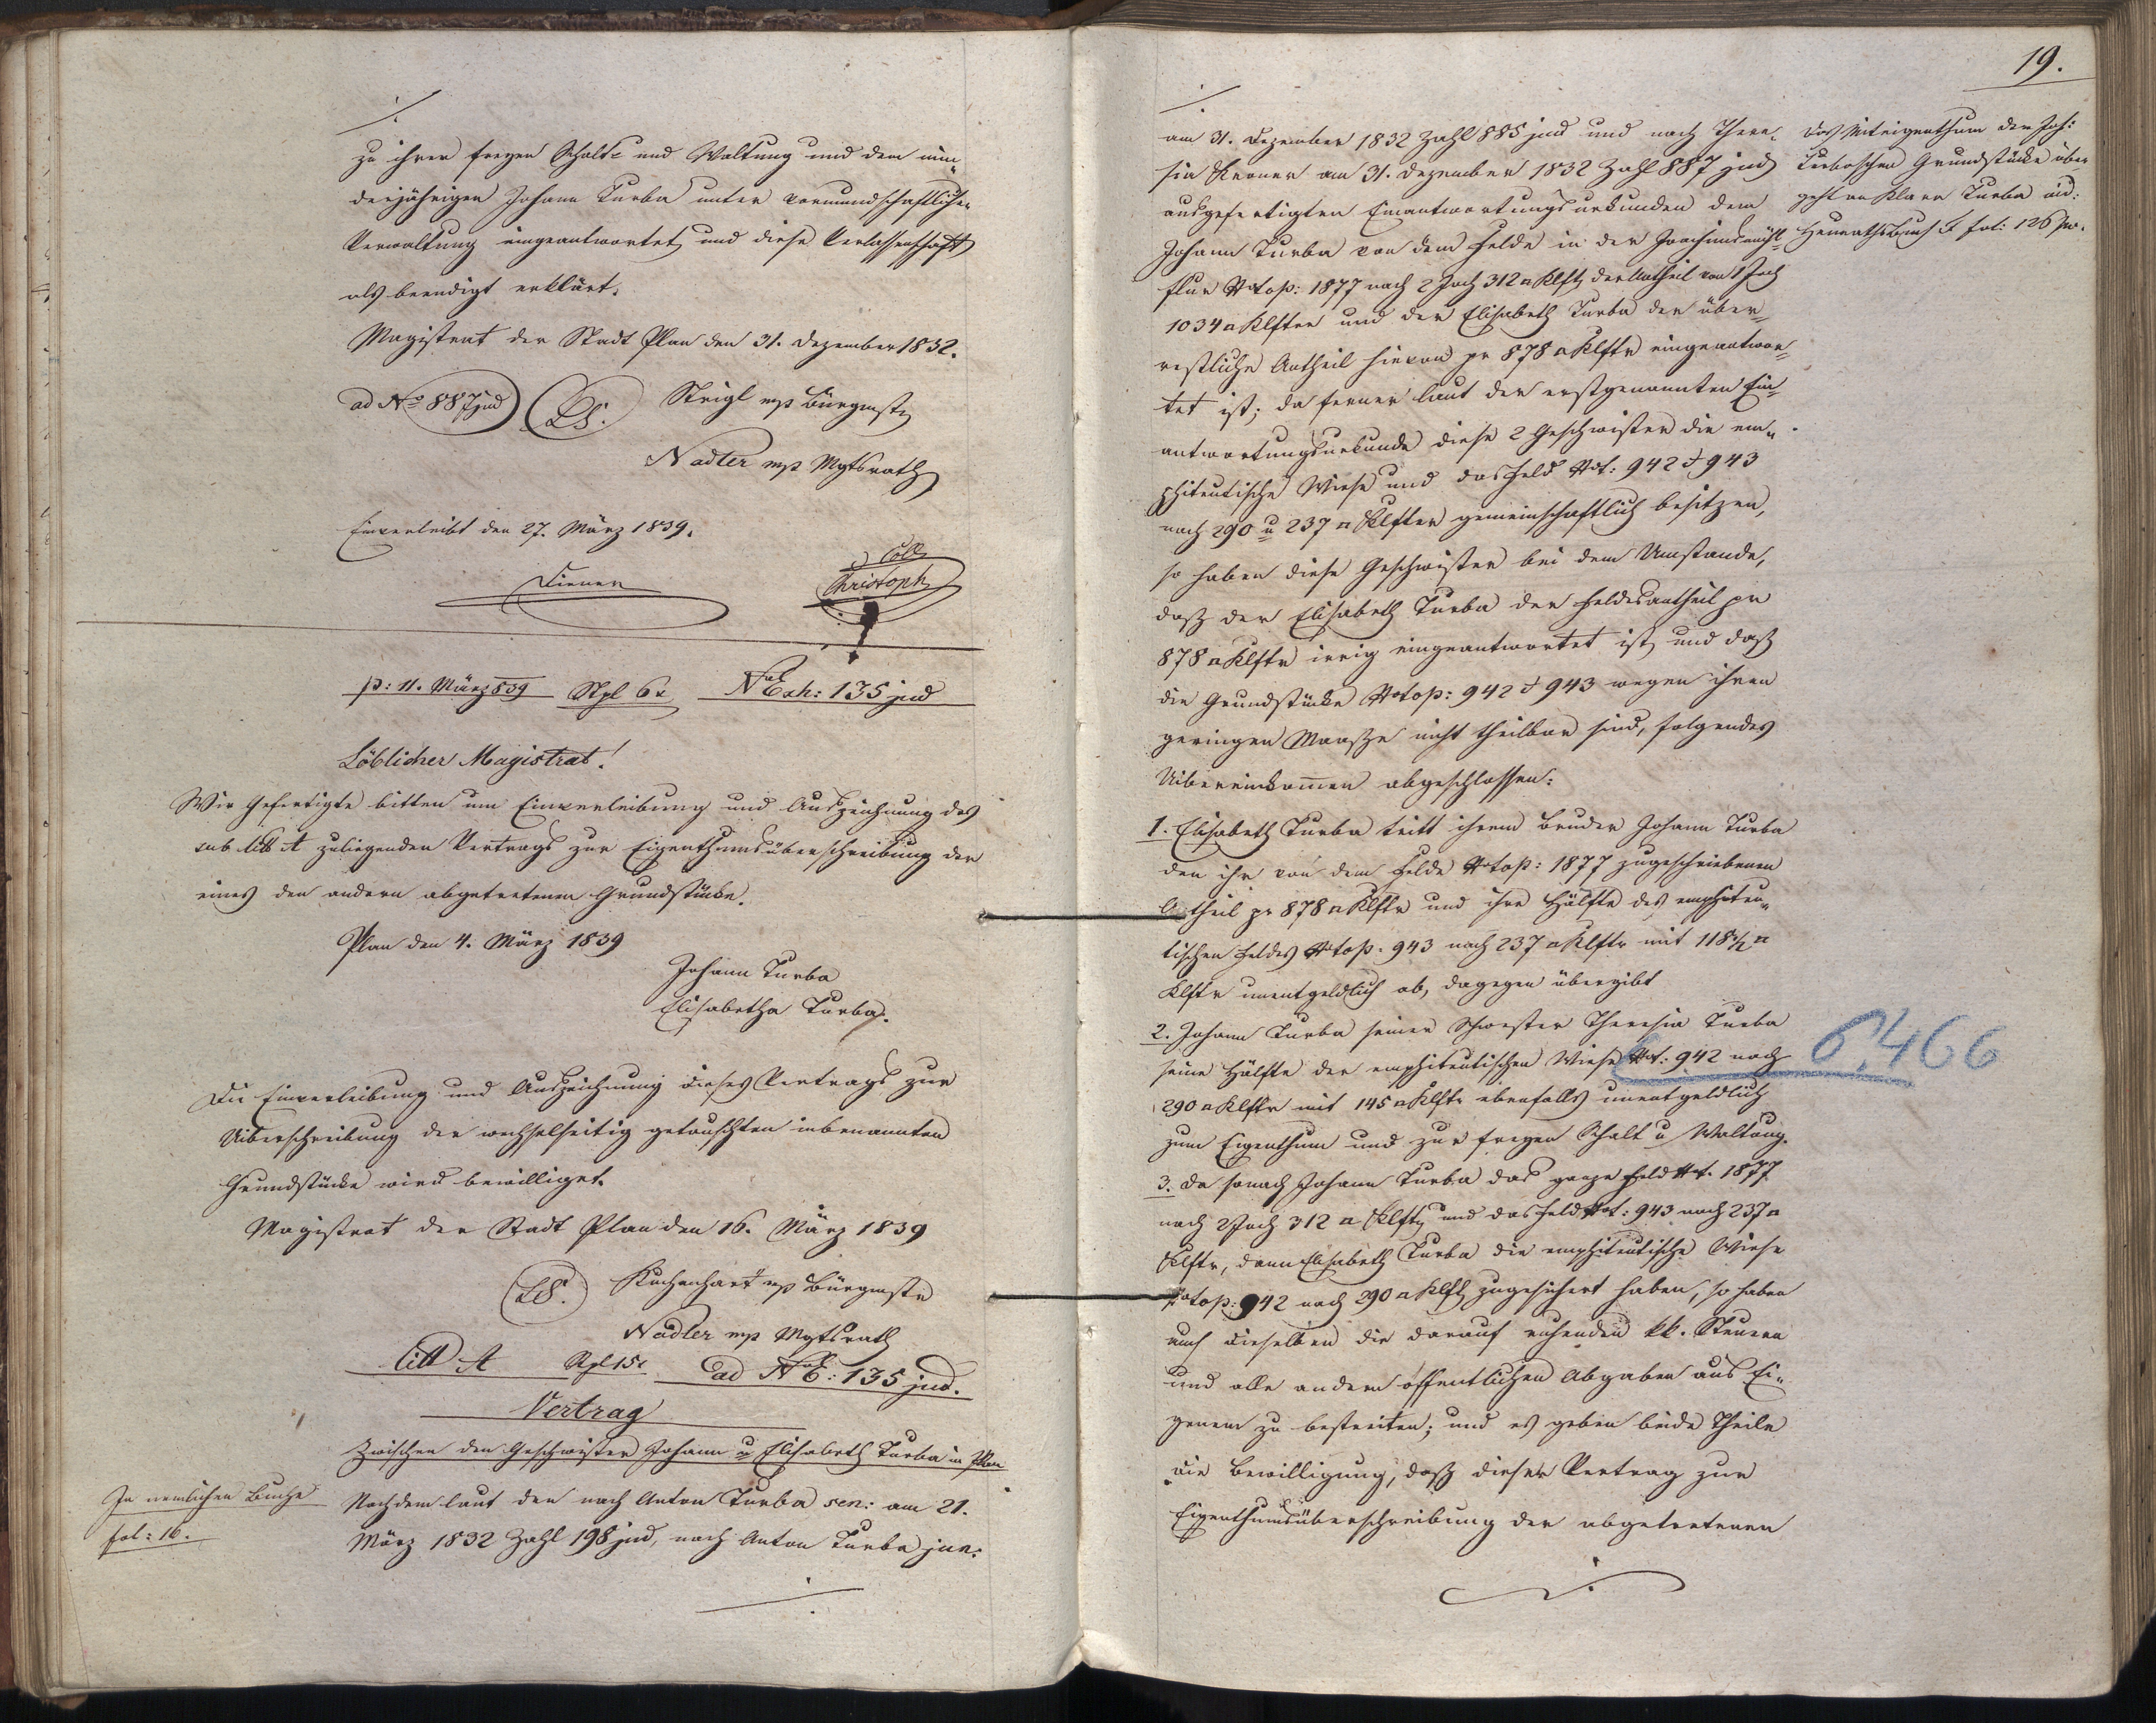 ./.
zu ihrer freyen Schalt- und Waltung und dem min-
derjährigen Johann Turba unter vormundschaftlicher
Verwaltung eingeantwortet, und diese Verlassenschaft
als beendigt erklärt.
Magistrat der Stadt Plan den 31. Dezember 1832.
ad No 887 jud LS. Strigl mp Bürgmstr
Nadler mp Mgtsrath
Einverleibt den 27. März 1839.
Coll
Diener Christoph
p: 11. März 839 Stpl 6x NE Exh: 135 jud
Löblicher Magistrat!
Wir Gefertigte bitten um Einverleibung und Auszeichnung des
sub litt A zuliegenden Vertrags zur Eigenthumsüberschreibung der
eines den andern abgetretenen Grundstücke.
Plan den 4. März 1839
Johann Turba
Elisabetha Turba.
Die Einverleibung und Auszeichnung dieses Vertrags zur
Uiberschreibung der wechselseitig getauschten inbenannten
Grundstücke wird bewilliget.
Magistrat der Stadt Plan den 16. März 1839
LS. Kuchenhart mp Bürgmstr
Nadler mp Mgtsrath
litt A Stpl 15x ad NE: 135 jud.
Vertrag
Zwischen den Geschwister Johann u Elisabeth Turba in Plan
In nemlichen Buche
fol: 16.
Nachdem laut den nach Anton Turba sen: am 21.
März 1832 Zahl 198 jud, nach Anton Turba jun:
./.
19.
./.
am 31. Dezember 1832 Zahl 885 jud und nach There-
sia Kerner am 31. Dezember 1832 Zahl 887 jud
ausgefertigten Einantwortungsurkunden dem
Johann Turba von dem Felde in der Joachimsmühl-
flur Notop: 1877 nach 2 Joch 312 □ Klftr der Antheil von 1 Joch
1034 □ Klfter und der Elisabeth Turba der über-
restliche Antheil hievon pr 878 □ Klftr eingeantwor-
tet ist; da ferner laut der erstgenannten Ein-
antwortungsurkunde diese 2 Geschwister die em-
phiteutische Wiese und das Feld Not: 942 & 943
nach 290 u 237 □ Klfter gemeinschaftlich besitzen,
so haben diese Geschwister bei dem Umstande,
daß der Elisabeth Turba der Feldesantheil pr
878 □ Klftr irrig eingeantwortet ist, und daß
die Grundstücke Notop: 942 & 943 wegen ihrer
geringen Maaße nicht theilbar sind, folgendes
Uibereinkommen abgeschlossen:
1. Elisabeth Turba tritt ihrem Bruder Johann Turba
den ihr von dem Felde Notop: 1877 zugeschriebenen
Antheil pr 878 □ Klftr und ihre Hälfte des emphiteu-
tischen Feldes Notop: 943 nach 237 □ Klftr mit 118 1/2 □
Klftr unentgeldlich ab, dagegen übergibt
2. Johann Turba seiner Schwester Theresia Turba
seine Hälfte der emphiteutischen Wiese Not: 942 nach
290 □ Klftr mit 145 □ Klftr ebenfalls unentgeldlich
zum Eigenthum und zur freyen Schalt u Waltung.
3. Da sonach Johann Turba das ganze Feld Not. 1877
nach 2 Joch 312 □ Klftr und das Feld Not: 943 nach 237 □
Klftr, dann Elisabeth Turba die emphiteutische Wiese
Notop: 942 nach 290 □ Klftr zugesichert haben, so haben
auch dieselben die darauf ruhenden kk. Steuern
und alle andern öffentlichen Abgaben aus Ei-
genem zu bestreiten; und es geben beide Theile
die Bewilligung, daß dieser Vertrag zur
Eigenthumsüberschreibung der abgetretenen
./.
Das Miteigenthum der Joh:
Turbaschen Grundstücke über-
geht an Klara Turba vid:
Heurathsbuch F fol: 126
6.466